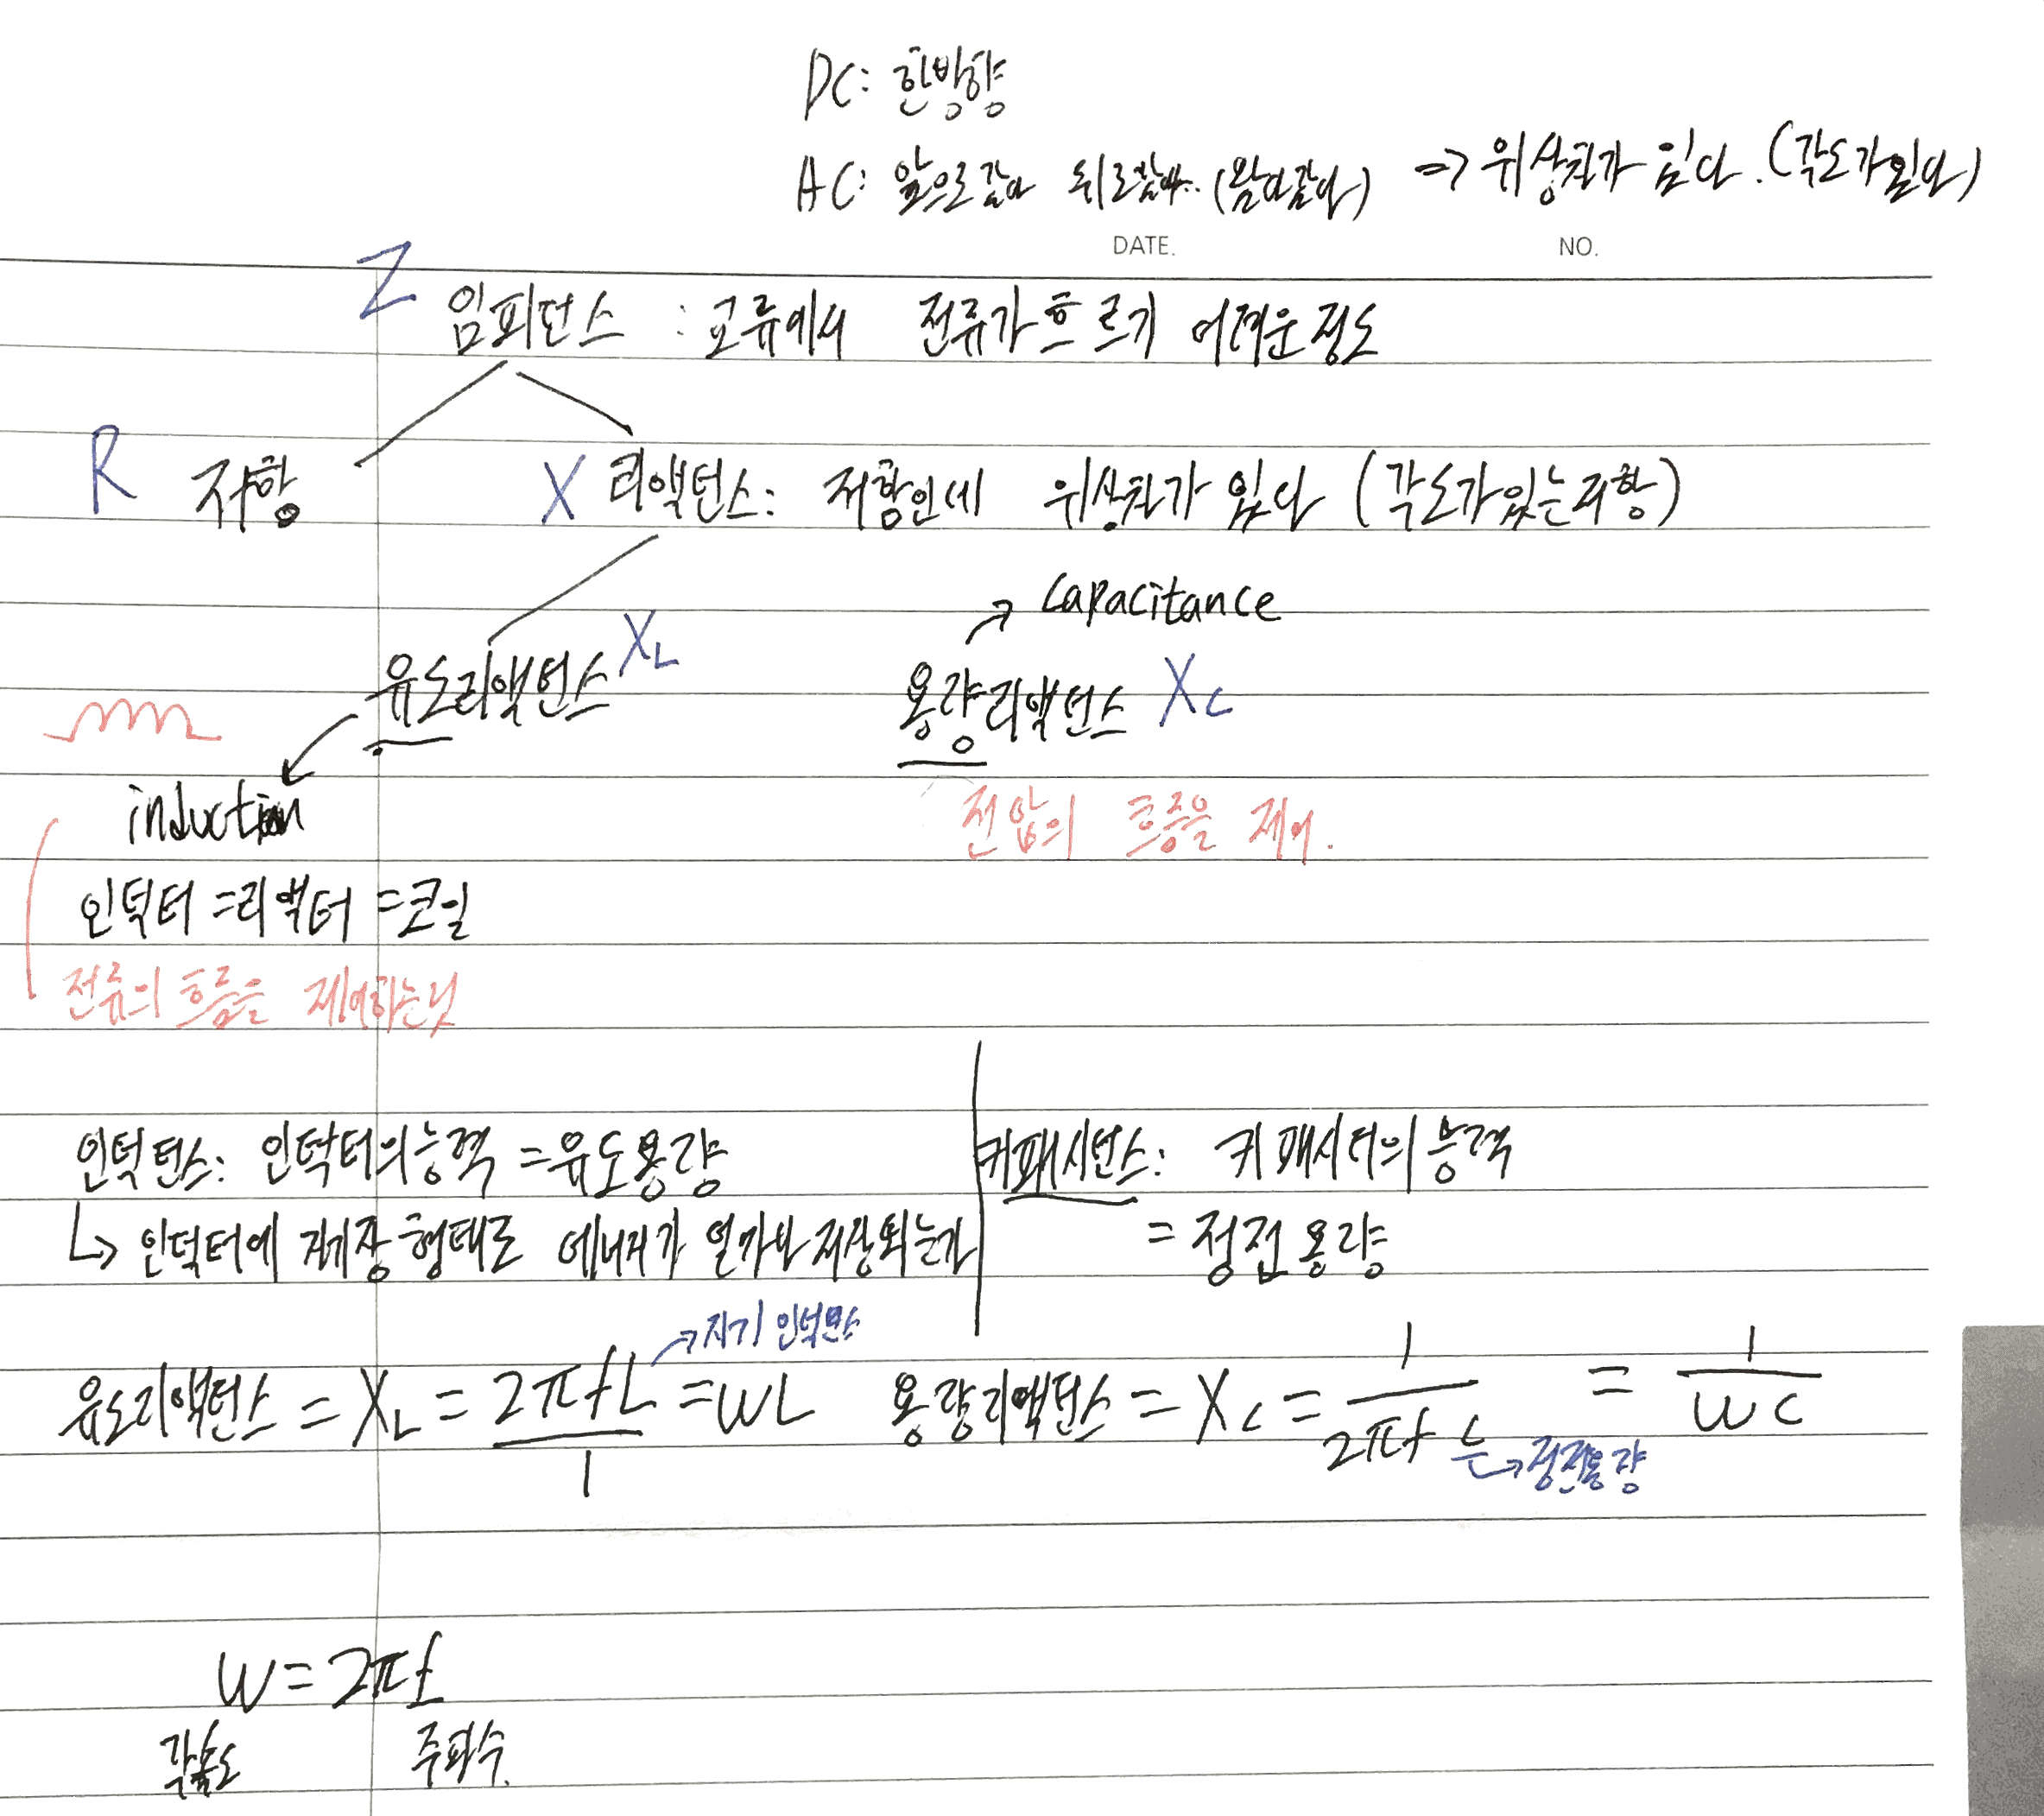 DC: 한방향
AC: 앞으로갔다 뒤로갔다.. (왔다갔다) => 위상차가 있다. (각도가있다)
DATE. NO.
Z 임피던스 : 교류에서 전류가흐르기 어려운정도
R 저항 X 리액턴스: 저항인데 위상차가 있다 (각도가있는저항)
→ capacitance
유도리액턴스 XL 용량리액턴스 XC
induction
전압의 흐름을 제어.
인덕터 =리액터 =코일
전류의 흐름을 제어하는것
인덕턴스: 인덕터의능력 =유도용량
↳ 인덕터에 자기장 형태로 에너지가 얼마나 저장되는가
커패시턴스: 커패시터의 능력
= 정전용량
→자기 인덕턴스
유도리액턴스 = XL = 2πfL/1 = WL
용량리액턴스 = XC = 1/2πfC = 1/WC
→정전용량
W = 2πf
각속도 주파수.